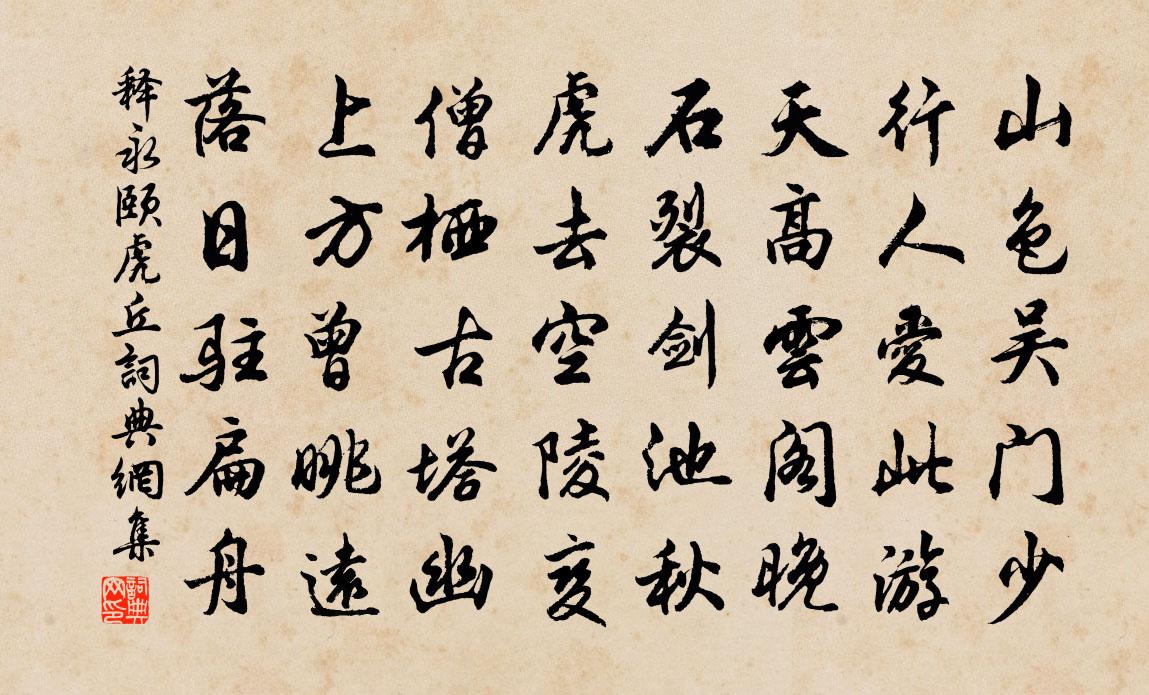 山色吴门少
行人愛此游
天高雲阁晚
石裂剑池秋
虎去空陵变
僧栖古塔幽
上方曾眺遠
落日驻扁舟
释永颐虎丘詞典網集
詞典网印